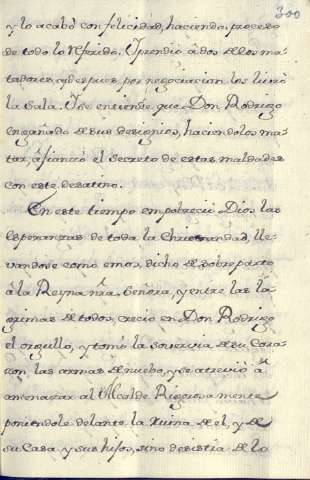 300
y lo acabó con felicidad, haciendo proceso
de todo lo referido. Prendio a dos de los ma-
tadores, q despues por negociacion los libró
la Sala. Y se entiende que Don Rodrigo
engañado de sus designios, haciendolos ma-
tar, afianció el secreto de estas maldades
con este desatino.
En este tiempo empobreció Dios las
esperanzas de toda la Christiandad, lle-
vandose como emos, dicho de sobreparto
à la Reyna nra. Señora, y entre las la
grimas de todos, crecio en Don Rodrigo
el orgullo, y tomó la sovervia de su Cora-
zon las armas de nuebo, y se atrevió à
amenazar al Alcalde Rigorosamente
poniendole delante la ruina de el, y de
su Casa y sus hijos, sino desistia de lo